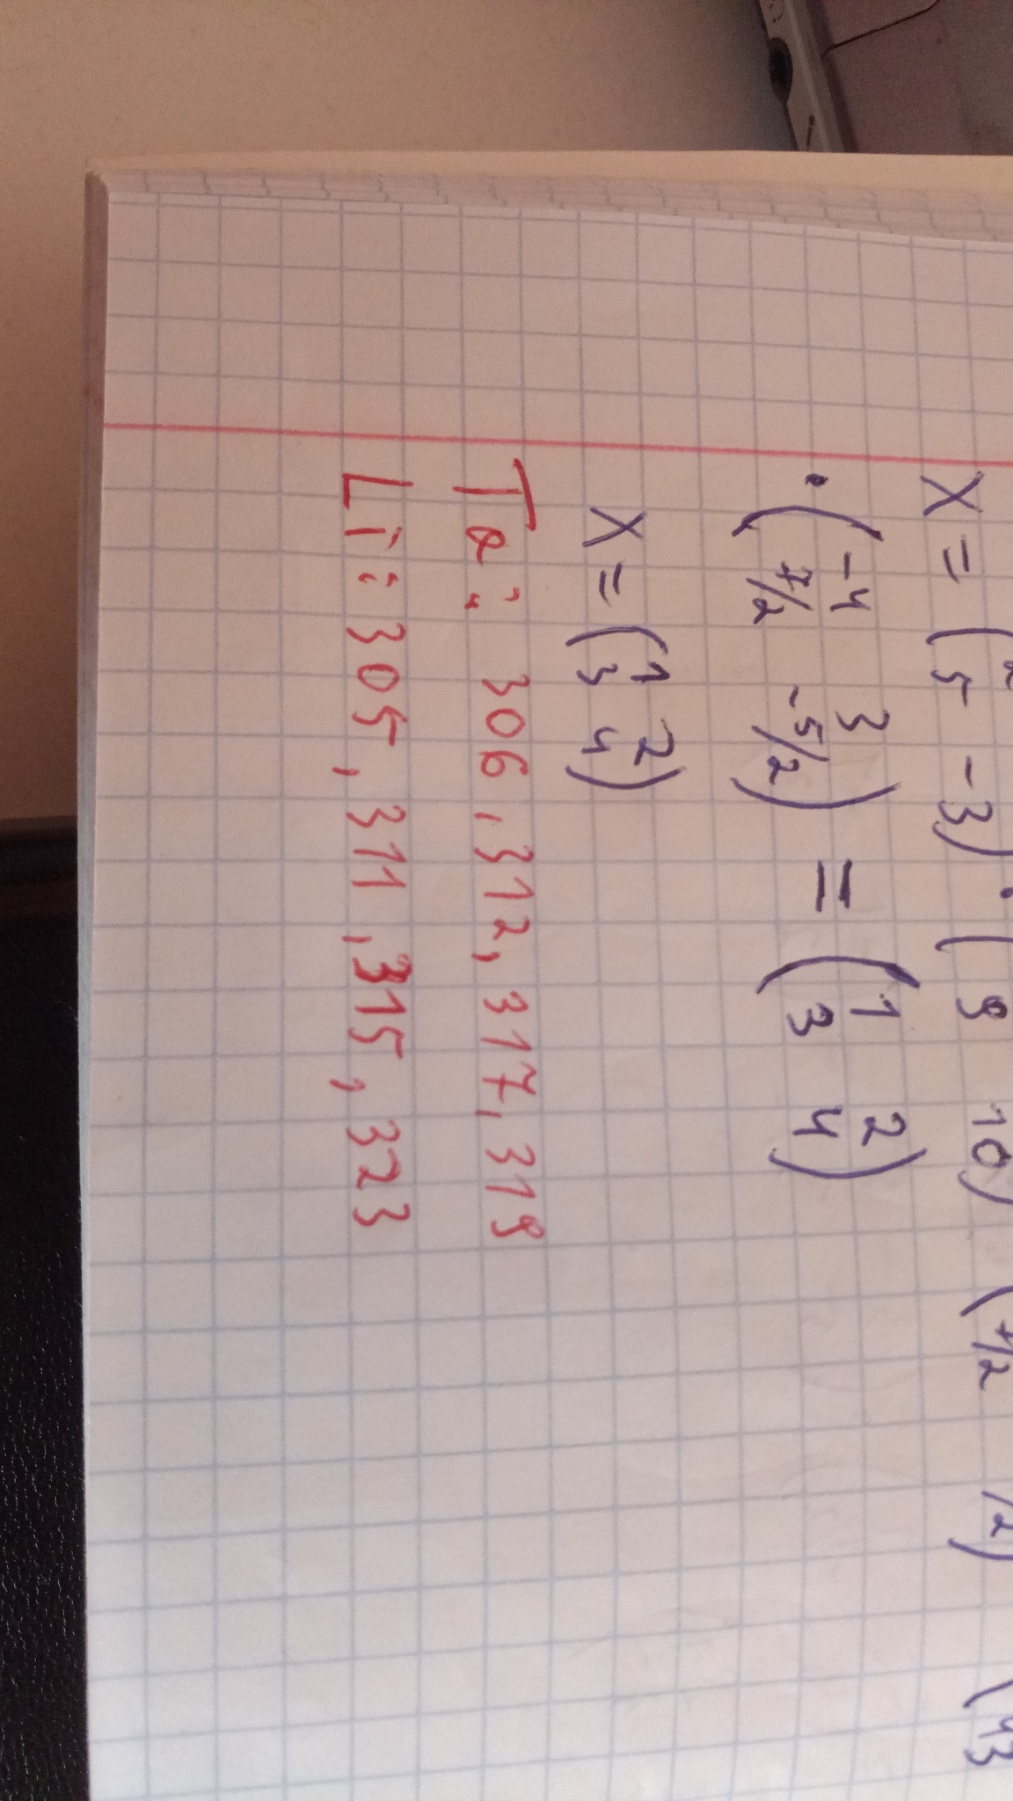 X = (5 -3) · (9 10) (7/2 /2) (43
· (-4 3
7/2 -5/2) = (1 2
3 4)
X = (1 2
3 4)
Ta: 306, 312, 317, 319
Li: 305, 311, 315, 323